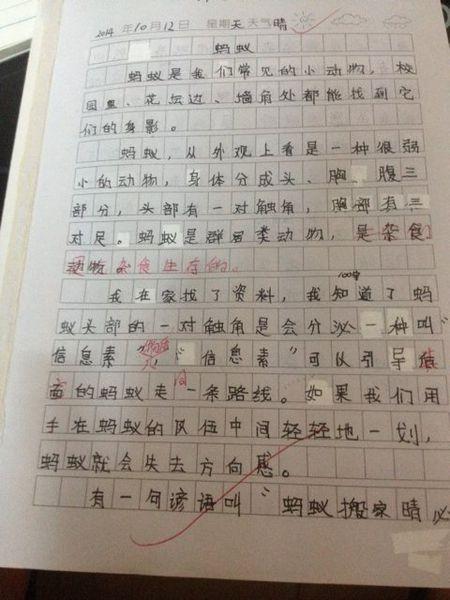 2014 年10月12日 星期天 天气晴
蚂蚁
蚂蚁是我们常见的小动物，校
园里、花坛边、墙角处都能找到它
们的身影。
蚂蚁，从外观上看是一种很弱
小的动物，身体分成头、胸、腹三
部分，头部有一对触角，胸部有三
对足。蚂蚁是群居类动物，是杂食
动物杂食生存的。
我在家找了资料，我知道了蚂
蚁头部的一对触角是会分泌一种叫"
信息素 "信息素"可以引导后
面的蚂蚁走同一条路线。如果我们用
手在蚂蚁的队伍中间轻轻地一划，
蚂蚁就会失去方向感。
有一句谚语叫"蚂蚁搬家晴必